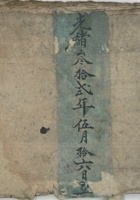 光緒叁拾弍年伍月拾六日